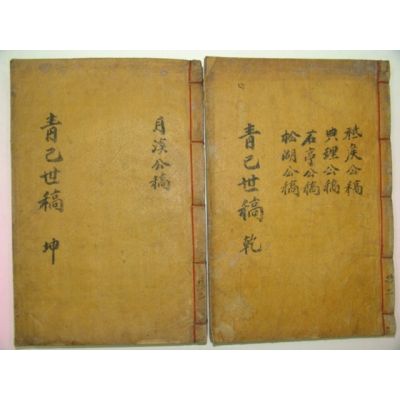 祗矦公稿
典理公稿
石亭公稿
松湖公稿
青己世稿 乾
月溪公稿
青己世稿 坤